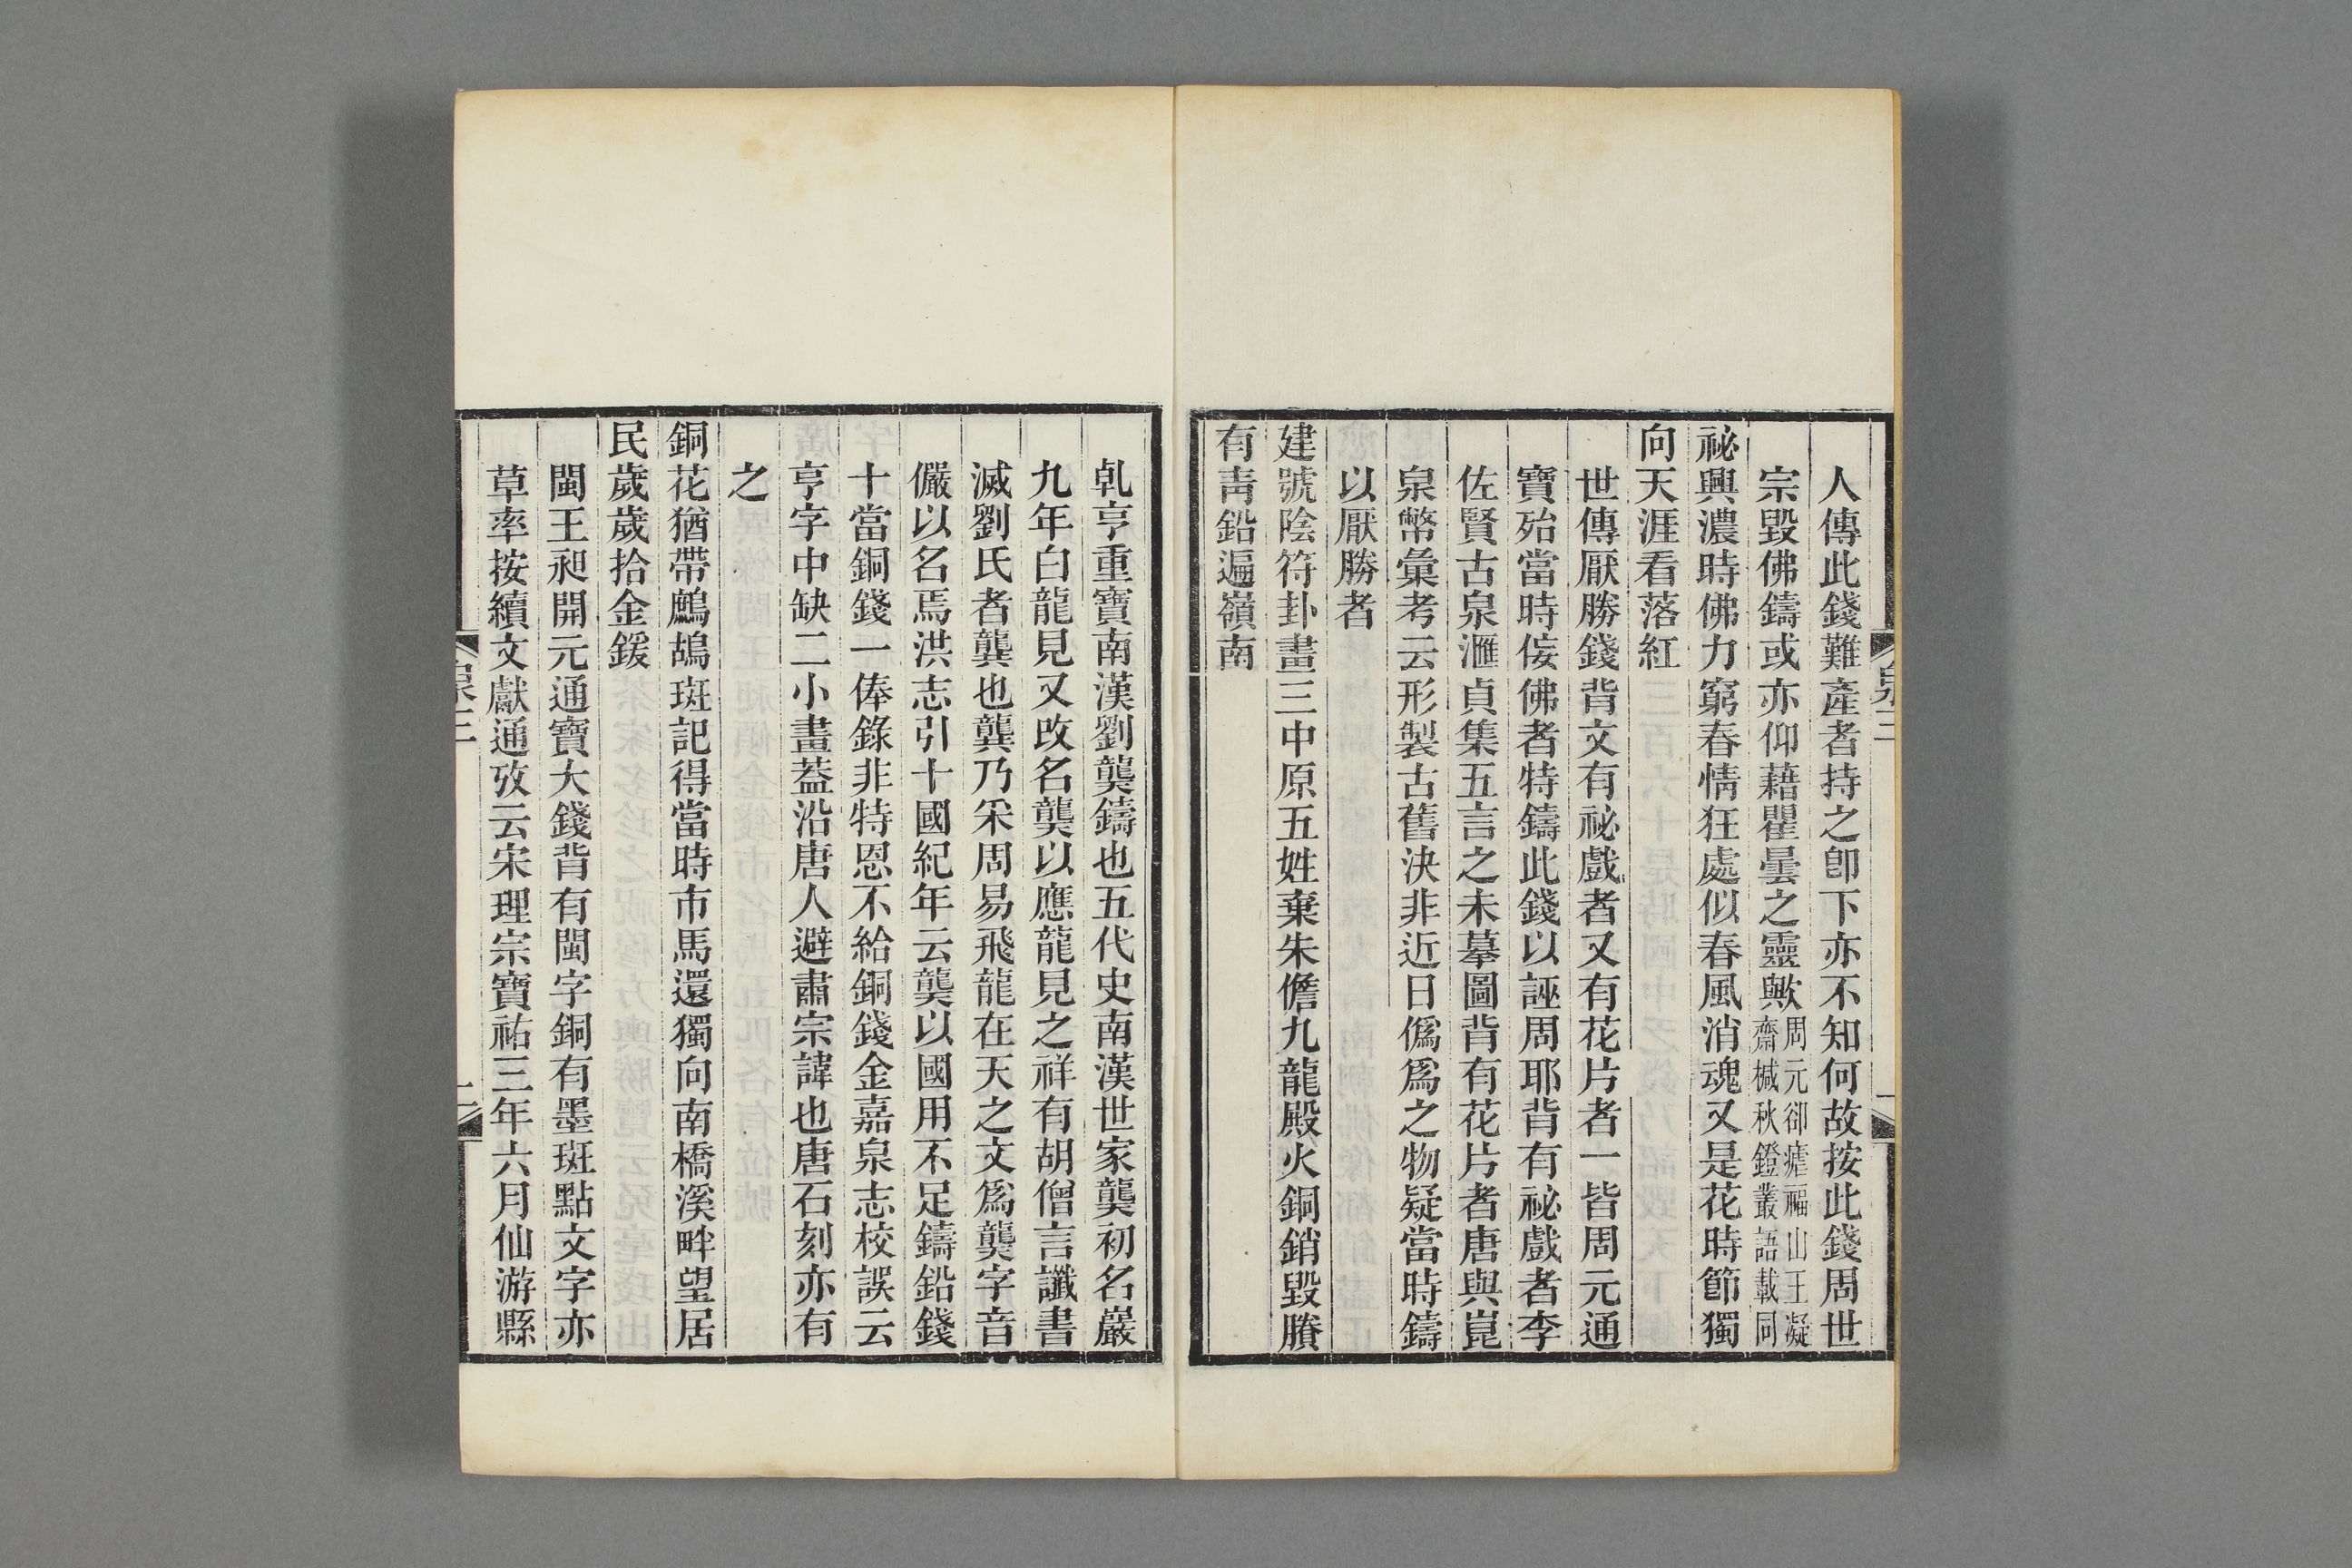 人傳此錢難產者持之卽下亦不知何故按此錢周世
宗毀佛鑄或亦仰藉瞿曇之靈歟周元卻瘧福山王凝齋械秋鐙叢語載同
祕興濃時佛力窮春情狂處似春風消魂又是花時節獨
向天涯看落紅
世傳厭勝錢背文有祕戲者又有花片者一皆周元通
寶殆當時侫佛者特鑄此錢以誣周耶背有祕戲者李
佐賢古泉滙貞集五言之未摹圖背有花片者唐與崑
泉幣彙考云形製古舊決非近日僞爲之物疑當時鑄
以厭勝者
建號陰符卦畫三中原五姓棄朱儋九龍殿火銅銷毀賸
有靑鉛遍嶺南
乹亨重寶南漢劉龑鑄也五代史南漢世家龑初名巖
九年白龍見又改名龔以應龍見之祥有胡僧言讖書
滅劉氏者龔也龑乃采周易飛龍在天之文爲龑字音
儼以名焉洪志引十國紀年云龑以國用不足鑄鉛錢
十當銅錢一俸錄非特恩不給銅錢金嘉泉志校誤云
亨字中缺二小畫葢沿唐人避肅宗諱也唐石刻亦有
之
銅花猶帶鷓鴣斑記得當時市馬還獨向南橋溪畔望居
民歲歲拾金鍰
閩王昶開元通寶大錢背有閩字銅有墨斑點文字亦
草率按續文獻通攷云宋理宗寶祐三年六月仙游縣